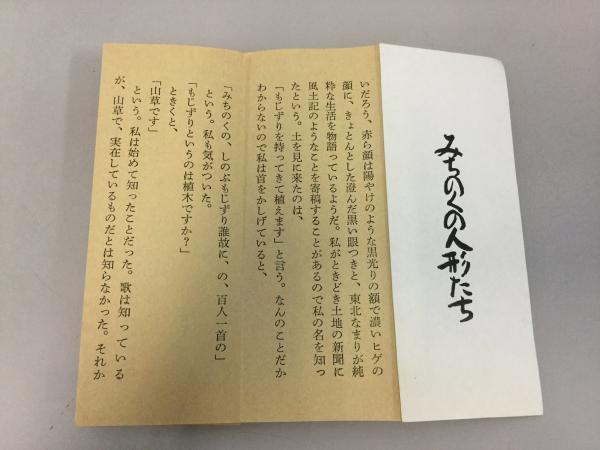 みちのくの人形たち
いだろう、赤ら顔は陽やけのような黒光りの額で濃いヒゲの
顔に、きょとんとした澄んだ黒い眼つきと、東北なまりが純
粋な生活を物語っているようだ。私がときどき土地の新聞に
風土記のようなことを寄稿することがあるので私の名を知っ
たという。土を見に来たのは、
「もじずりを持ってきて植えます」と言う。なんのことだか
わからないので私は首をかしげていると、
「みちのくの、しのぶもじずり誰故に、の、百人一首の」
という。私も気がついた。
「もじずりというのは植木ですか？」
ときくと、
「山草です」
という。私は始めて知ったことだった。歌は知っている
が、山草で、実在しているものだとは知らなかった。それか